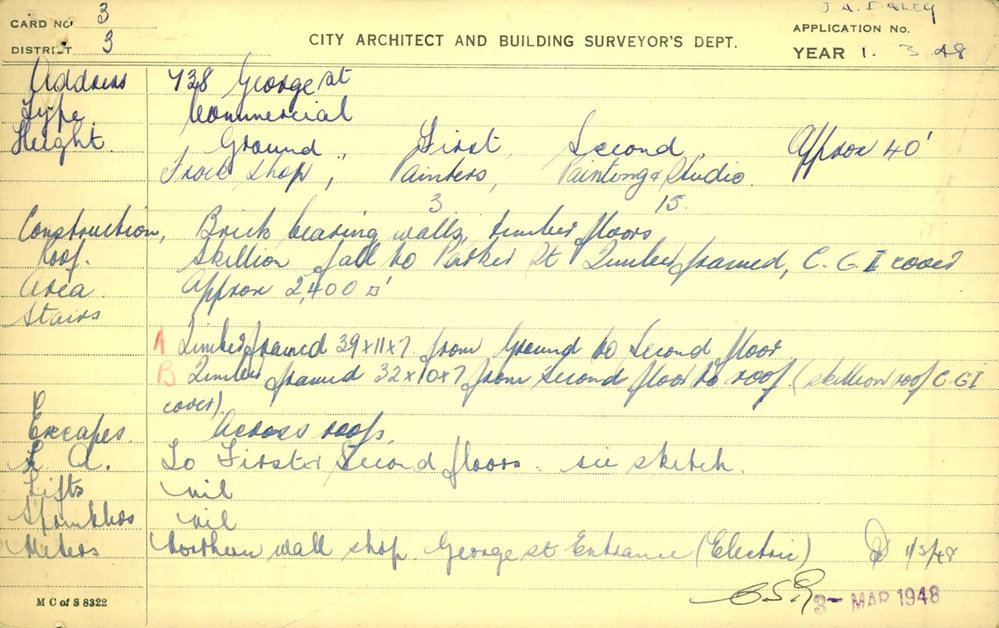 J.A. DALEY
CARD NO 3
APPLICATION NO.
DISTRICT 3
CITY ARCHITECT AND BUILDING SURVEYOR'S DEPT.
YEAR 1. 3. 48
Address 738 George st
Type Commercial
Height. Ground, First, Second, Approx 40'
Frock Shop, Painters, Painting & Studio.
3 15.
Construction, Brick bearing walls, timber floors
Roof. Skillion fall to Parker St Timber framed, C.G.I cover
Area. Approx 2,400 □'
Stairs
A Timber framed 39x11x7 from Ground to Second floor
B Timber framed 32x10x7 from Second floor to roof (skillion roof C.GI
cover)
Escapes. Across roofs.
F. A. To First & Second floors. see sketch.
Lifts nil
Sprinklers nil
Meters Northern wall shop. George st Entrance (Electric) 1/3/48
3- MAR 1948
M C of S 8322